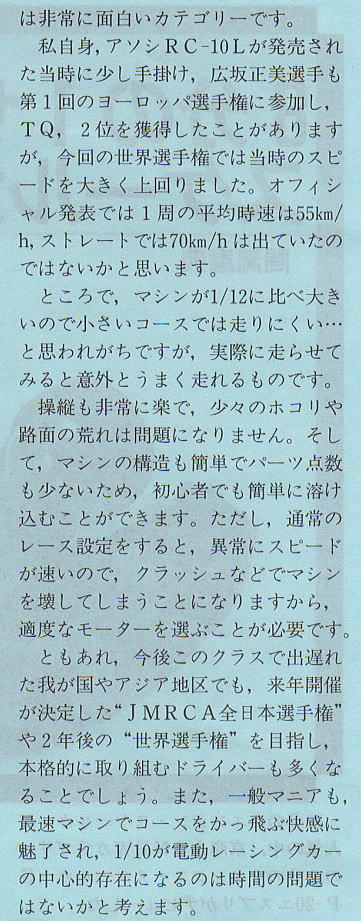 は非常に面白いカテゴリーです。
　私自身，アソシRC-10Lが発売され
た当時に少し手掛け，広坂正美選手も
第１回のヨーロッパ選手権に参加し，
TQ，２位を獲得したことがあります
が，今回の世界選手権では当時のスピ
ードを大きく上回りました。オフィシ
ャル発表では１周の平均時速は55km/
h，ストレートでは70km/hは出ていたの
ではないかと思います。
　ところで，マシンが1/12に比べ大き
いので小さいコースでは走りにくい…
と思われがちですが，実際に走らせて
みると意外とうまく走れるものです。
　操縦も非常に楽で，少々のホコリや
路面の荒れは問題になりません。そし
て，マシンの構造も簡単でパーツ点数
も少ないため，初心者でも簡単に溶け
込むことができます。ただし，通常の
レース設定をすると，異常にスピード
が速いので，クラッシュなどでマシン
を壊してしまうことになりますから，
適度なモーターを選ぶことが必要です。
　ともあれ，今後このクラスで出遅れ
た我が国やアジア地区でも，来年開催
が決定した“JMRCA全日本選手権”
や２年後の“世界選手権”を目指し，
本格的に取り組むドライバーも多くな
ることでしょう。また，一般マニアも，
最速マシンでコースをかっ飛ぶ快感に
魅了され，1/10が電動レーシングカー
の中心的存在になるのは時間の問題で
はないかと考えます。